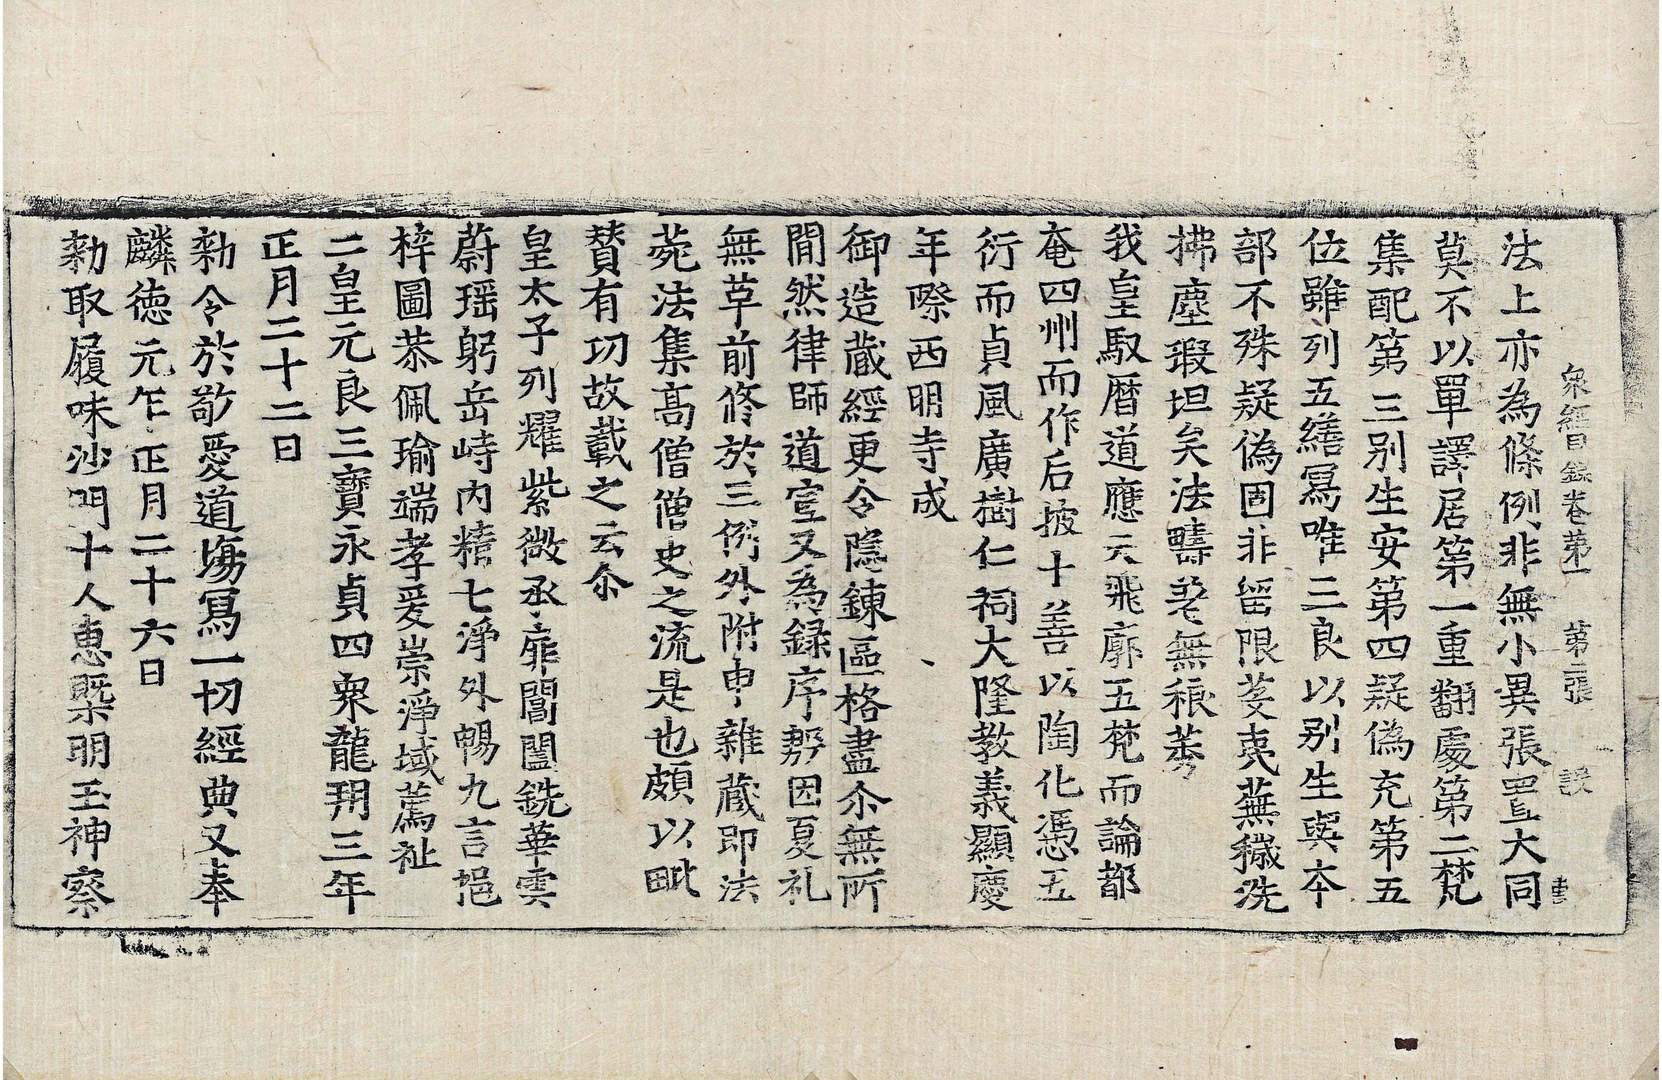 衆經目錄卷第一　第二張　設
法上亦為條例非無小異張置大同
莫不以單譯居第一重翻處第二梵
集配第三别生安第四疑偽充第五
位雖列五繕寫唯三良以别生與本
部不殊疑偽固非留限芟夷蕪穢洗
拂塵瑕坦矣法疇無稂莠
我皇馭曆道應天飛廓五梵而論都
奄四州而作后披十善以陶化憑五
衍而貞風廣樹仁祠大隆教義顯慶
年際西明寺成
御造藏經更令隱鍊區格盡尒無所
間然律師道宣又為録序勢因夏礼
無草前脩於三例外附申雜藏即法
菀法集高僧僧史之流是也頗以毗
賛有功故載之云尒
皇太子列耀紫微承扉閶闔銑華雲
蔚瑶躬岳峙内精七淨外暢九言挹
梓圖恭佩瑜端孝爰崇淨域薦祉
二皇元良三寶永貞四衆龍朔三年
正月二十二日
勑令於敬愛道場寫一切經典又奉
麟徳元年正月二十六日
勑取履味沙門十人惠槩明玉神察